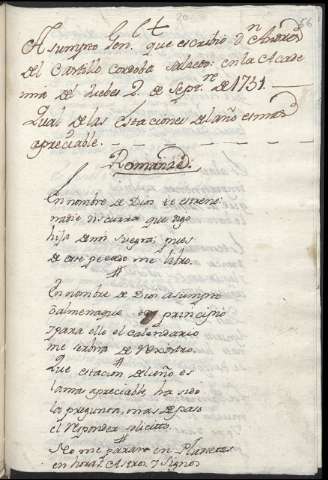 56
Asumpto Gen.l que escribio D.n Andres
del Castillo Cordoba Palacio: en la Acade
mia del Juebes 2. de Sept.re de 1751.
Qual de las Estaciones del año es mas
apreciable.
Romance.
En nombre de Dios te estreno
nadie discurra que digo
hija de mi suegra, pues
de ese pecado me libro.
En nombre de Dios asumpto
principio
y para ello el Calendario
me servira de
Que estacion del año es
la mas apreciable, ha sido
la pregunta, mas de paso
el responder
No me pararé en Planetas
en horas, Astros, y Signos